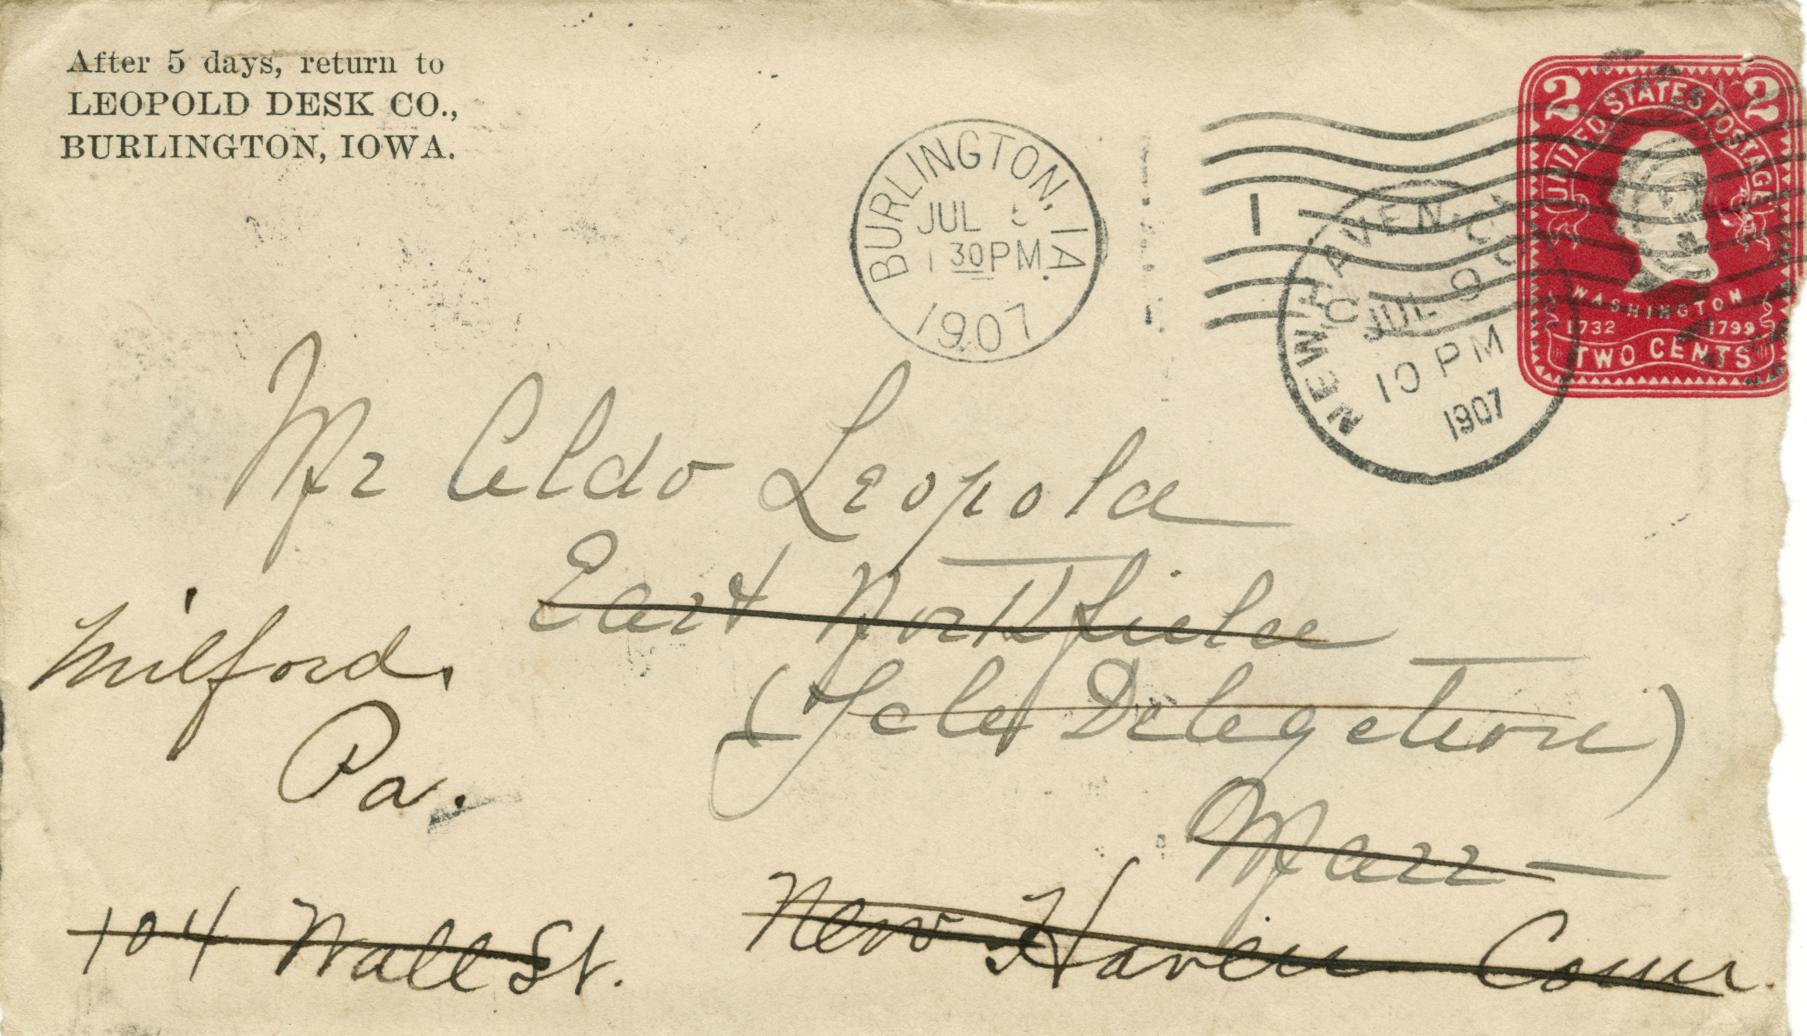 After 5 days, return to
LEOPOLD DESK CO.,
BURLINGTON, IOWA.
BURLINGTON, IA.
JUL
1 30 PM
1907
1
NEW HAVEN, CONN.
JUL 9
10 PM
1907
2 2
UNITED STATES POSTAGE
WASHINGTON
1732 1799
TWO CENTS
Mr Aldo Leopold
East Northfield
(Yale Delegation)
Mass
Milford,
Pa.
104 Wall St. New Haven Conn.